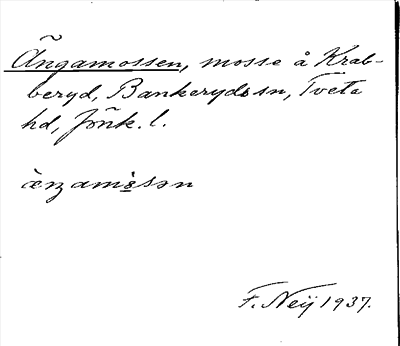 Ängamossen, mosse å Krab-
beryd, Bankeryds sn, Tveta
hd, Jönk. l.
F. Neij 1937.